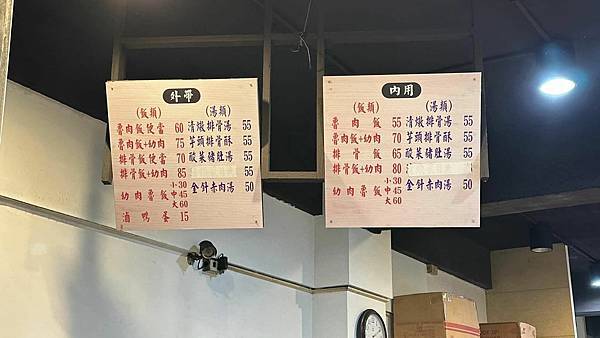 外帶
(飯類)
魯肉飯便當 60
魯肉飯+幼肉 75
排骨飯便當 70
排骨飯+幼肉 85
幼肉魯飯 小30 中45 大60
滷鴨蛋 15
(湯類)
清燉排骨湯 55
芋頭排骨酥 55
酸菜豬肚湯 55
55
金針赤肉湯 50
內用
(飯類)
魯肉飯 55
魯肉飯+幼肉 70
排骨飯 65
排骨飯+幼肉 80
幼肉魯飯 小30 中45 大60
(湯類)
清燉排骨湯 55
芋頭排骨酥 55
酸菜豬肚湯 55
55
金針赤肉湯 50